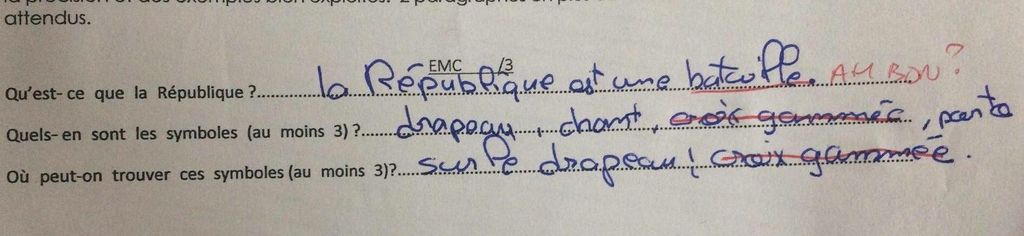 attendus.
EMC /3
Qu'est-ce que la République ? la République est une bataille. AH BON ?
Quels-en sont les symboles (au moins 3) ? drapeau, chant, croix gammée,
Où peut-on trouver ces symboles (au moins 3)? sur le drapeau, croix gammée.